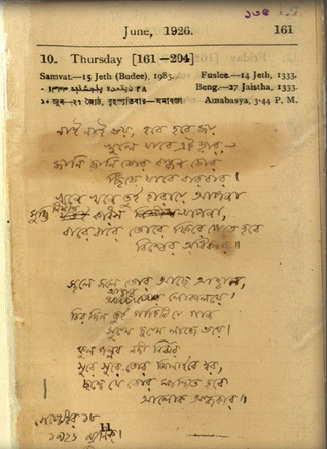 June, 1926. 161
10. Thursday [161—204]
Samvat.—15 Jeth (Budee), 1983. Fuslee.—14 Jeth, 1333.
Beng.—27 Jaistha, 1333.
১০ জুন—২৭ জ্যৈষ্ঠ, বৃহস্পতিবার—অমাবস্যা Amabasya, 3-44 P. M.
নাই নাই ভয়, হবে হবে জয়
খুলে যাবে এই দ্বার—
জানি জানি তোর বন্ধন ডোর
ছিঁড়ে যাবে বারবার।
খনে খনে তুই হারায়ে আপনা
সুপ্তি নিশীথ করিস যাপনা,
বারে বারে তোরে ফিরে পেতে হবে
বিশ্বের অধিকার॥
স্থলে জলে তোর আছে আহ্বান,
আহ্বান লোকালয়ে,
চিরদিন তুই গাহিবি যে গান
সুখে দুখে লাজে ভয়ে।
ফুল পল্লব নদী নির্ঝর
সুরে সুরে তোর মিলাইবে স্বর,
ছন্দে যে তোর স্পন্দিত হবে
আলোক অন্ধকার॥
১৯২৬
11